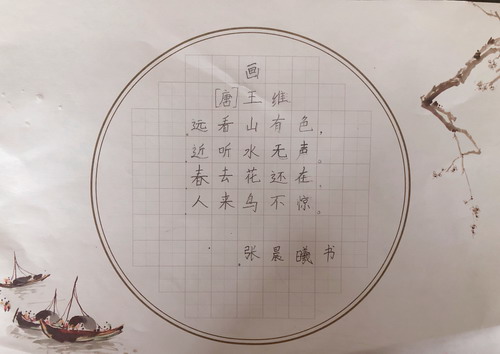 画
[唐]王维
远看山有色,
近听水无声。
春去花还在,
人来鸟不惊。
张晨曦书